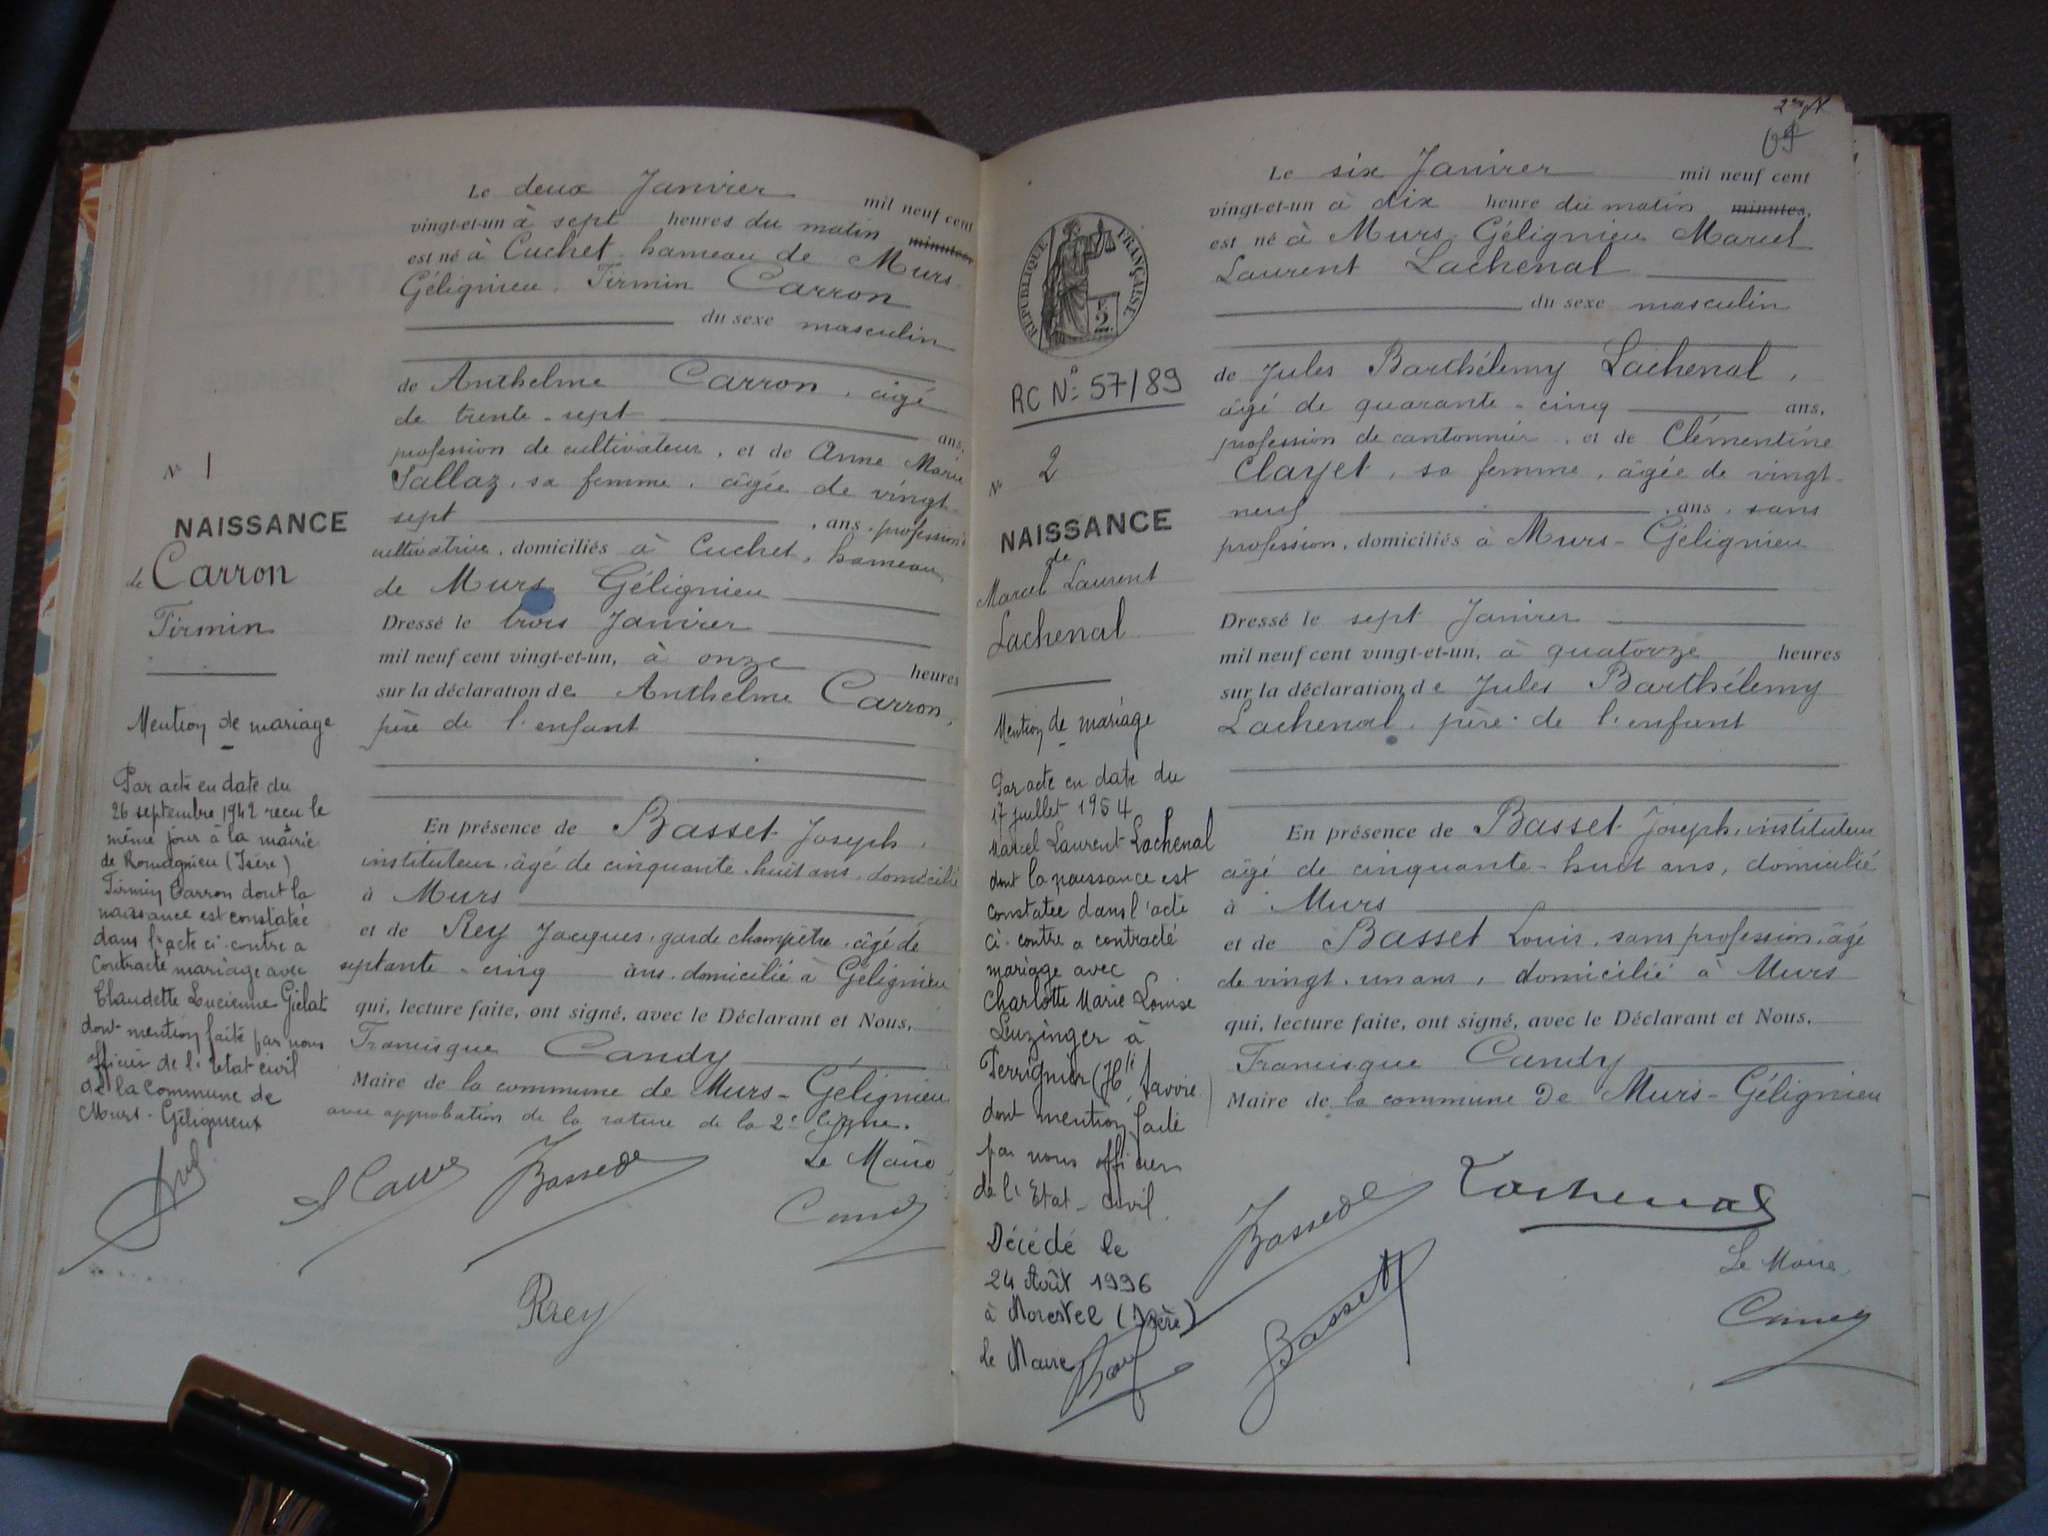 Nº 1
NAISSANCE
de Carron
Firmin
Mention de mariage
Par acte en date du
26 septembre 1942 recu le
même jour à la mairie
de Romagnieu (Isère)
Firmin Carron dont la
naissance est constatée
dans l'acte ci-contre a
contracté mariage avec
Claudette Lucienne
dont mention faite par nous
officier de l'Etat civil
de la commune de
Murs-Géligneux
Le deux Janvier mil neuf cent
vingt-et-un à sept heures du matin minutes
est né à Cuchet, hameau de Murs
Gélignieu, Firmin Carron
du sexe masculin
de Anthelme Carron, âgé
de trente-sept ans,
profession de cultivateur, et de Anne Marie
Sallaz, sa femme, âgée de vingt
sept, ans, profession
cultivatrice, domiciliés à Cuchet, hameau
de Murs Gélignieu
Dressé le trois Janvier
mil neuf cent vingt-et-un, à onze heures
sur la déclaration de Anthelme Carron,
père de l'enfant
En présence de Basset Joseph,
instituteur, âgé de cinquante-huit ans, domicilié
à Murs
et de Rey Jacques, garde champêtre, âgé de
septante-cinq ans, domicilié à Gélignieu
qui, lecture faite, ont signé, avec le Déclarant et Nous,
Francisque Candy
Maire de la commune de Murs-Gélignieu
avec approbation de la rature de la 2e ligne.
Le Maire
Rey
2
RÉPUBLIQUE FRANÇAISE
RC Nº 57/89
Nº 2
NAISSANCE
de
Marcel Laurent
Lachenal
Mention de mariage
Par acte en date du
17 juillet 1954
Marcel Laurent Lachenal
dont la naissance est
constatée dans l'acte
ci-contre a contracté
mariage avec
Charlotte Marie Louise
Luzinger à
Perrignier (Hte Savoie)
dont mention faite
par nous officier
de l'Etat-civil.
Décédé le
24 Août 1996
à Morestel (Isère)
le Maire
Le six Janvier mil neuf cent
vingt-et-un à dix heure du matin minutes,
est né à Murs Gélignieu Marcel
Laurent Lachenal
du sexe masculin
de Jules Barthélemy Lachenal,
âgé de quarante-cinq ans,
profession de cantonnier, et de Clémentine
Clayet, sa femme, âgée de vingt-
neuf, ans, sans
profession, domiciliés à Murs-Gélignieu
Dressé le sept Janvier
mil neuf cent vingt-et-un, à quatorze heures
sur la déclaration de Jules Barthélemy
Lachenal, père de l'enfant
En présence de Basset Joseph, instituteur
âgé de cinquante-huit ans, domicilié
à Murs
et de Basset Louis, sans profession, âgé
de vingt-un ans, domicilié à Murs
qui, lecture faite, ont signé, avec le Déclarant et Nous,
Francisque Candy
Maire de la commune de Murs-Gélignieu
Lachenal
Basset
Le Maire